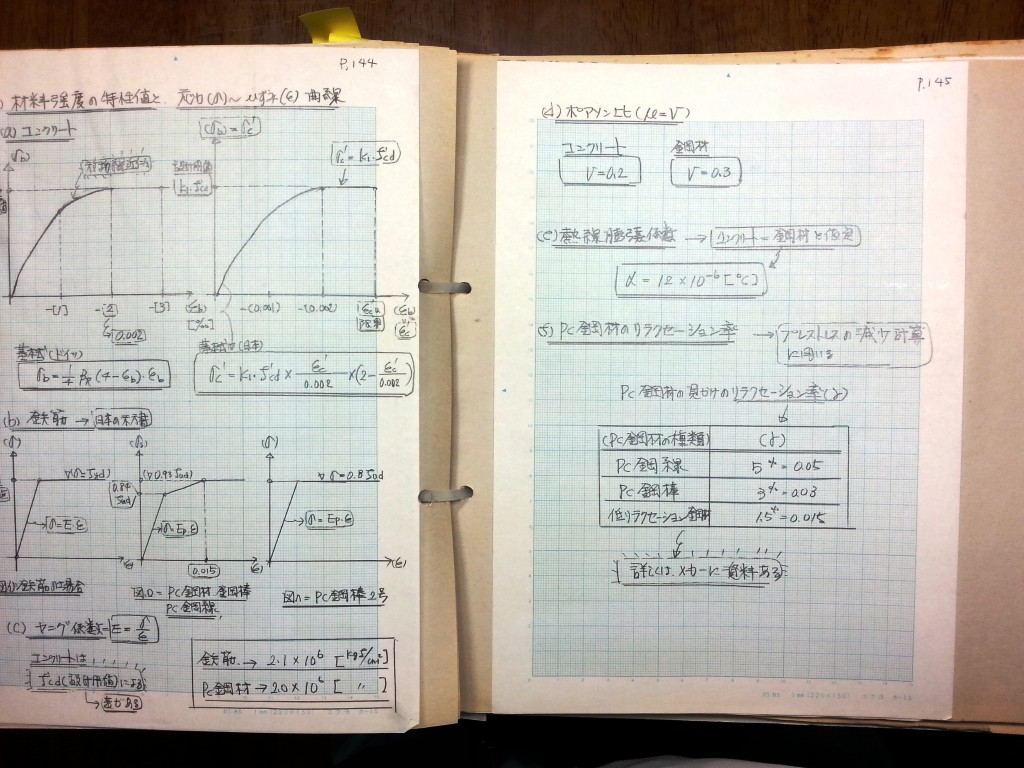 P.144
材料強度の特性値と 応力(σ)～ひずみ(ε)曲線
(a) コンクリート
(σb) = σc'
σb
設計用値
k1・f'cd
σc' = k1・f'cd
-[1] -[2] -[3] (εb)
[‰]
0.002
-(0.001) -(0.002) ε'cu (εb)
ε'c
基本式(ドイツ)
基本式(日本)
σb = 1/4 βR (4 - εb)・εb
σc' = k1・f'cd × εc'/0.002 × (2 - εc'/0.002)
(b) 鉄筋 → 日本の示方書
(σ) (σ) (σ)
0.84 fud
▽0.93 fud
▽σ = 0.8 fud
σ = E・ε
σ = Ep・ε
σ = Ep・ε
0.015
(ε) (ε) (ε)
図イ) 鉄筋の場合
図ロ = PC鋼材 鋼棒
PC鋼線
図ハ = PC鋼棒2号
(C) ヤング係数 = E = σ/ε
コンクリートは
f'cd(設計用値)による
表がある
鉄筋 → 2.1 × 10^6 [kgf/cm²]
PC鋼材 → 2.0 × 10^6 [ 〃 ]
P.145
(d) ポアソン比 (μ = ν)
コンクリート 鋼材
ν = 0.2 ν = 0.3
(e) 熱線膨張係数 → コンクリート = 鋼材と仮定
α = 12 × 10^-6 [℃]
(5) PC鋼材のリラクセーション率 → プレストレスの減少計算
に用いる
PC鋼材の見かけのリラクセーション率(γ)
(PC鋼材の種類) (γ)
PC鋼線 5% = 0.05
PC鋼棒 3% = 0.03
低リラクセーション鋼材 1.5% = 0.015
詳しくは メーカーに資料ある